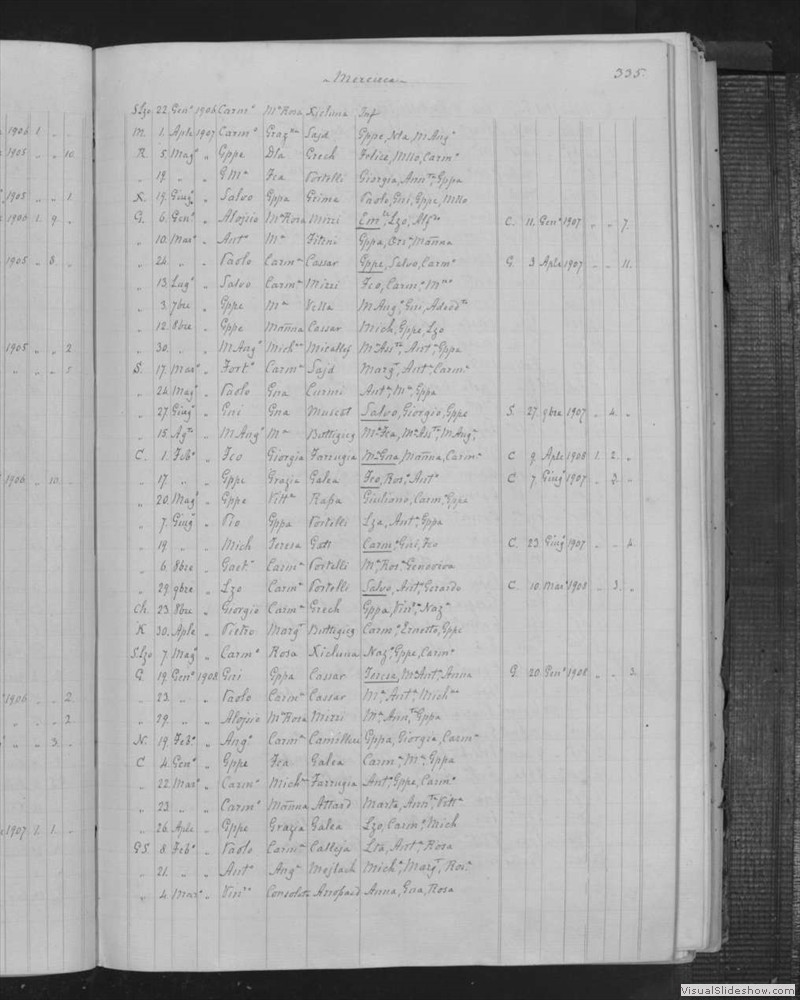 Mercieca 335.
S.Lzo 22 Gen° 1906 Carm° Ma Rosa Xicluna Inf
1906 1 M. 1. Aple 1907 Carm° Graz Sajd Gppe, Nta, M Ang°
1905 10 R 5. Mag° " Gppe Dta Grech Felice, Mllo, Carm°
" 19 " " G Ma Fca Portelli Giorgia, Gppa
1905 1 X. 19. Giug° " Salvo Gppa Grima Paolo, Gni, Gppe, Mllo
1906 1 9 G. 6. Gen° " Aloisio Ma Rosa Mizzi Lzo, G. 11. Gen° 1907 " " 7.
" 10. Mar° " Ant° Ma Fiteni Gppa, Manna
1905 8 " 24 " " Paolo Carma Cassar Gppe, Salvo, Carm° G. 3 Aple 1907 " " 11.
" 13 Lug° " Salvo Carma Mizzi Fco, Carm°
" 3. 7bre " Gppe Ma Vella M Ang°, Gni
" 12 8bre " Gppe Manna Cassar Mich, Gppe, Lzo
1905 2 " 30. " " M Ang° Micallef Gppa
5 S. 17 Mar° " Fort° Carma Sajd Marg, Ant, Carm
" 24 Mag° " Paolo Gna Curmi Ant, Ma, Gppa
" 27 Giug° " Gni Gna Muscat Salvo, Giorgio, Gppe S. 27. 9bre 1907 " 4 "
" 15. Ag " M Ang° Ma Buttigieg Ma Fca, M Ang
C. 1. Feb° " Fco Giorgia Farrugia Ma Gna, Manna, Carma C 9. Aple 1908 1. 2. "
1906 10 " 17 " " Gppe Grazia Galea Fco, Ros, Ant C 7. Giug° 1907 " 3 "
" 20 Mag° " Gppe Vitta Rapa Giuliano, Carm, Gppa
" 7. Giug° " Pio Gppa Portelli Lza, Ant, Gppa
" 19 " " Mich Teresa Gatt Carm, Gni, Fco C. 23. Giug° 1907 " " 4
" 6 8bre " Gaet° Carma Portelli Ma, Ros, Genoveva
" 29. 9bre " Lzo Carma Portelli Salvo, Ant, Gerardo C. 10. Mar° 1908 " 3. "
Ch. 23 8bre " Giorgio Carma Grech Gppa, Naz
K 30. Aple " Pietro Marg Buttigieg Carm, Ernesto, Gppe
S.Lzo 7 Mag° " Carm° Rosa Xicluna Naz, Gppe, Carm
G. 19 Gen° 1908 Gni Gppa Cassar Teresa, Ma Ant, Anna G. 20 Gen° 1908 " " 2
1906 2 " 23. " " Paolo Carma Cassar Ma, Ant, Mich
2 " 29. " " Aloisio Ma Rosa Mizzi Ma, Gppa
3 N. 19. Feb° " Ang° Carma Camilleri Gppa, Giorgia, Carma
C 4. Gen° " Gppe Fca Galea Carm, Ma, Gppa
" 22 Mar° " Carm° Mich Farrugia Ant, Gppe, Carm
" 23 " " Carm° Manna Attard Marta, Vitta
1907 1 1 " 26 Aple " Gppe Grazia Galea Lzo, Carm, Mich
GS. 8. Feb° " Paolo Carma Calleja Ant, Rosa
" 21. " " Ant° Ang Majlach Mich, Marg, Ros
" 4 Mar° " Consolata Azzopard Anna, Gna, Rosa
VisualSlideshow.com